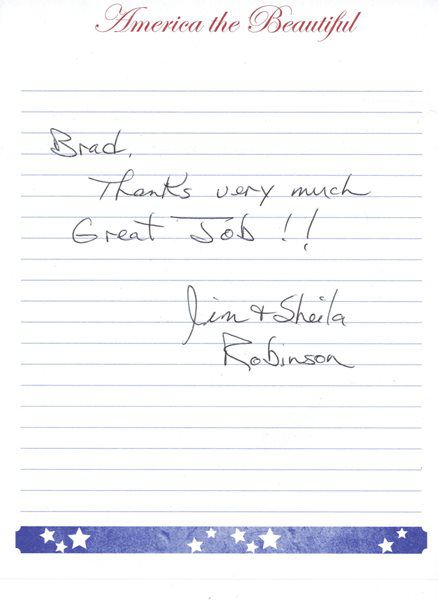 America the Beautiful
Brad,
Thanks very much
Great Job !!
Jim + Sheila
Robinson